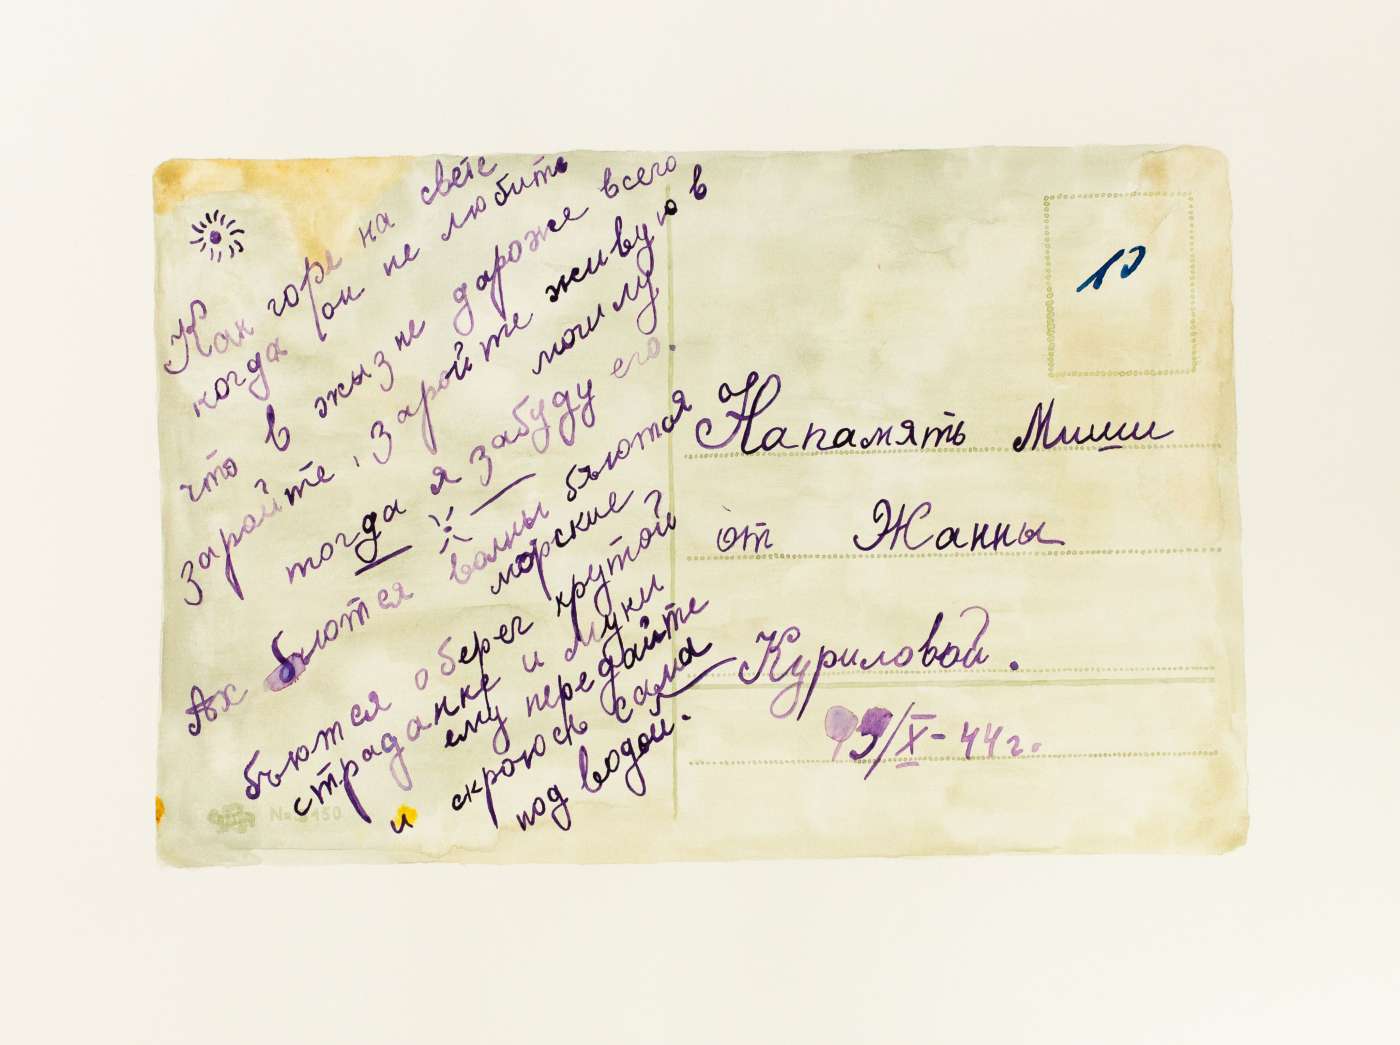 Как горе на свете
когда он не любить
что в жызне дароже всего
заройте, заройте живую в
могилу
тогда я забуду его.
Ах бьются валны бьются
морские
бъются оберег крутой
страданке и муки
ему передайте
и скроюсь сама
под водой.
10
Напамять Миши
от Жанны
Куриловой.
/X-44г.
№